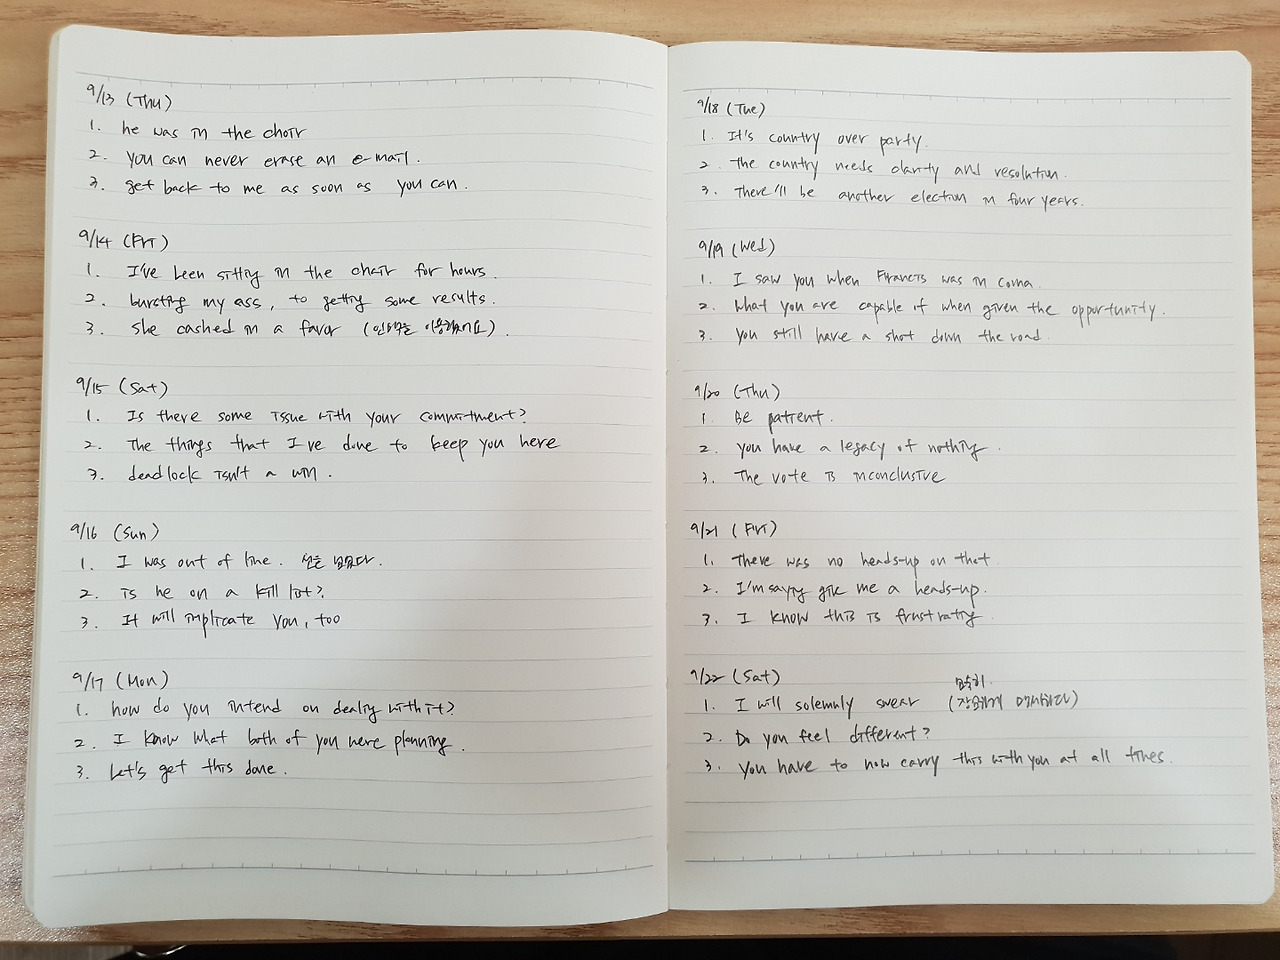 9/13 (Thu)
1. he was in the choir
2. you can never erase an e-mail.
3. get back to me as soon as you can.
9/14 (Fri)
1. I've been sitting in the chair for hours.
2. bursting my ass, to getting some results.
3. she cashed in a favor (인맥을 이용했어요).
9/15 (Sat)
1. Is there some issue with your commitment?
2. The things that I've done to keep you here
3. deadlock isn't a win.
9/16 (Sun)
1. I was out of line. 선을 넘었다.
2. is he on a kill list?
3. It will implicate you, too
9/17 (Mon)
1. how do you intend on dealing with it?
2. I know what both of you were planning.
3. Let's get this done.
9/18 (Tue)
1. It's country over party.
2. The country needs clarity and resolution.
3. There'll be another election in four years.
9/19 (Wed)
1. I saw you when Francis was in coma.
2. What you are capable of when given the opportunity.
3. you still have a shot down the road.
9/20 (Thu)
1. Be patient.
2. you have a legacy of nothing.
3. The vote is inconclusive
9/21 (Fri)
1. There was no heads-up on that.
2. I'm saying give me a heads-up.
3. I know this is frustrating.
9/22 (Sat)
엄숙히.
1. I will solemnly swear (장엄하게 맹세하다)
2. Do you feel different?
3. you have to now carry this with you at all times.